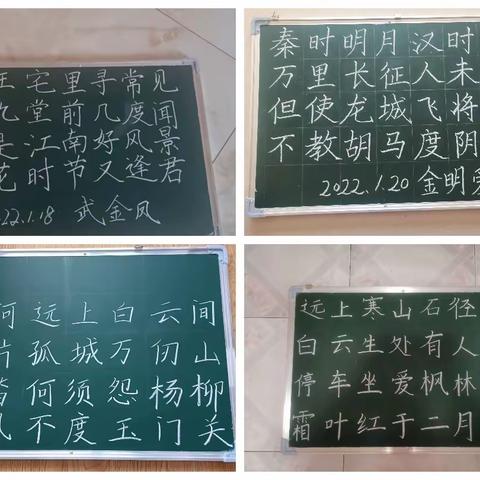 王宅里寻常见
九堂前几度闻
是江南好风景
花时节又逢君
22.1.18 武金凤
秦时明月汉时
万里长征人未
但使龙城飞将
不教胡马度阴
2022.1.20 金明
河远上白云间
片孤城万仞山
笛何须怨杨柳
风不度玉门关
远上寒山石径
白云生处有人
停车坐爱枫林
霜叶红于二月